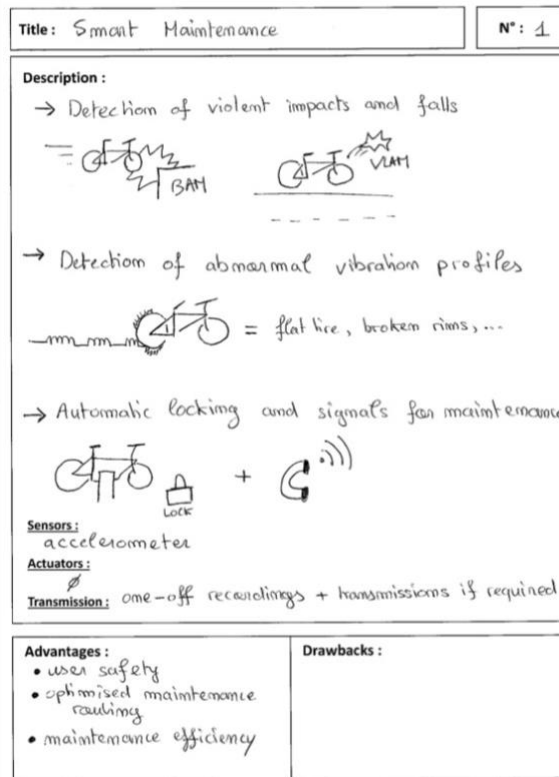 Title : Smart Maintenance
N° : 1
Description :
→ Detection of violent impacts and falls
BAM
VLAM
→ Detection of abnormal vibration profiles
= flat tire, broken rims, ...
→ Automatic locking and signals for maintenance
+
LOCK
Sensors :
accelerometer
Actuators :
Ø
Transmission : one-off recordings + transmissions if required
Advantages :
• user safety
• optimised maintenance
routing
• maintenance efficiency
Drawbacks :